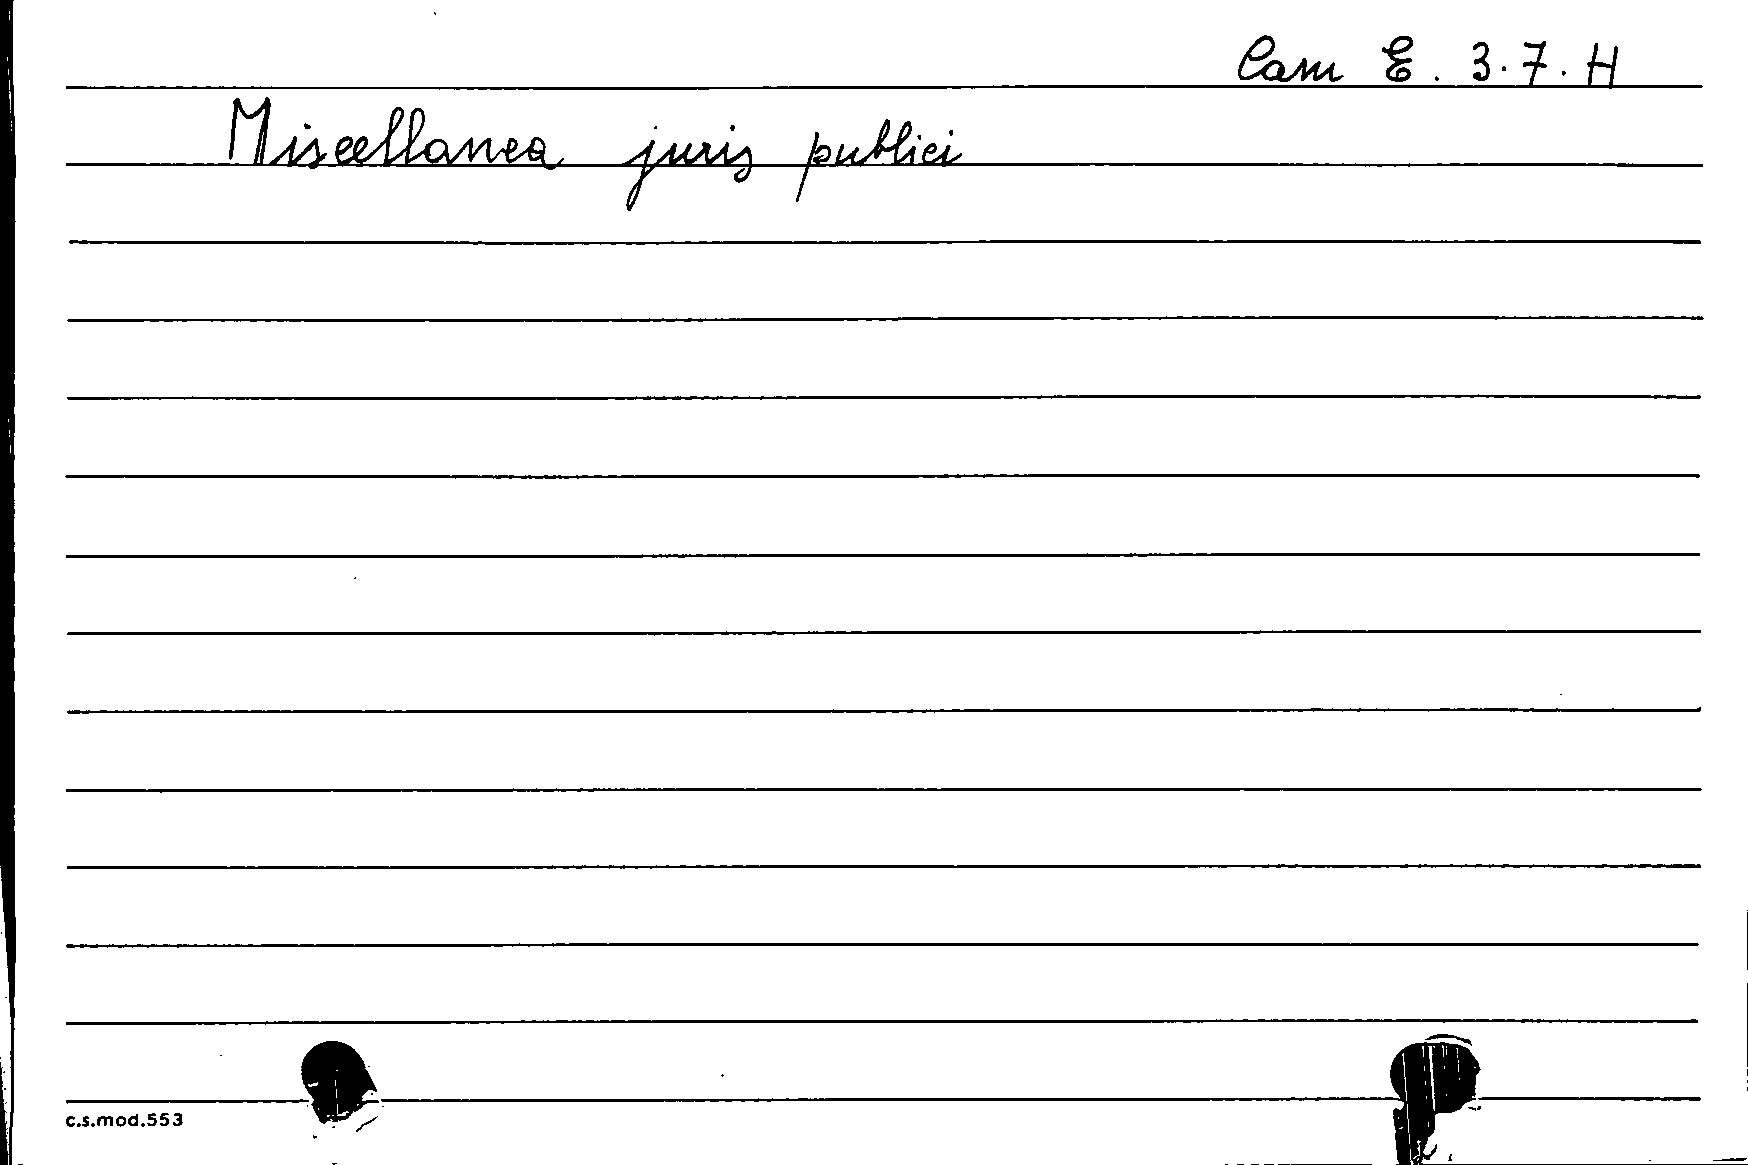 Cam E. 3.7.H
Miscellanea juris publici
c.s.mod.553